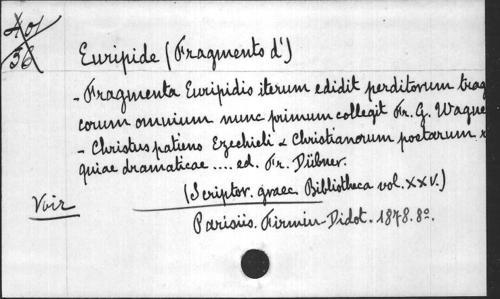 40/
56
Euripide (Fragments d')
- Fragmenta Euripidis iterum edidit perditorum trag
corum omnium nunc primum collegit Fr. G. Wagne
- Christus patiens Ezechieli & Christianorum poetarum r
quiae dramaticae .... ed. Fr. Dübner.
Voir (Scriptor. graec. Bibliotheca vol. XXV.)
Parisiis. Firmin-Didot. 1878. 8º.